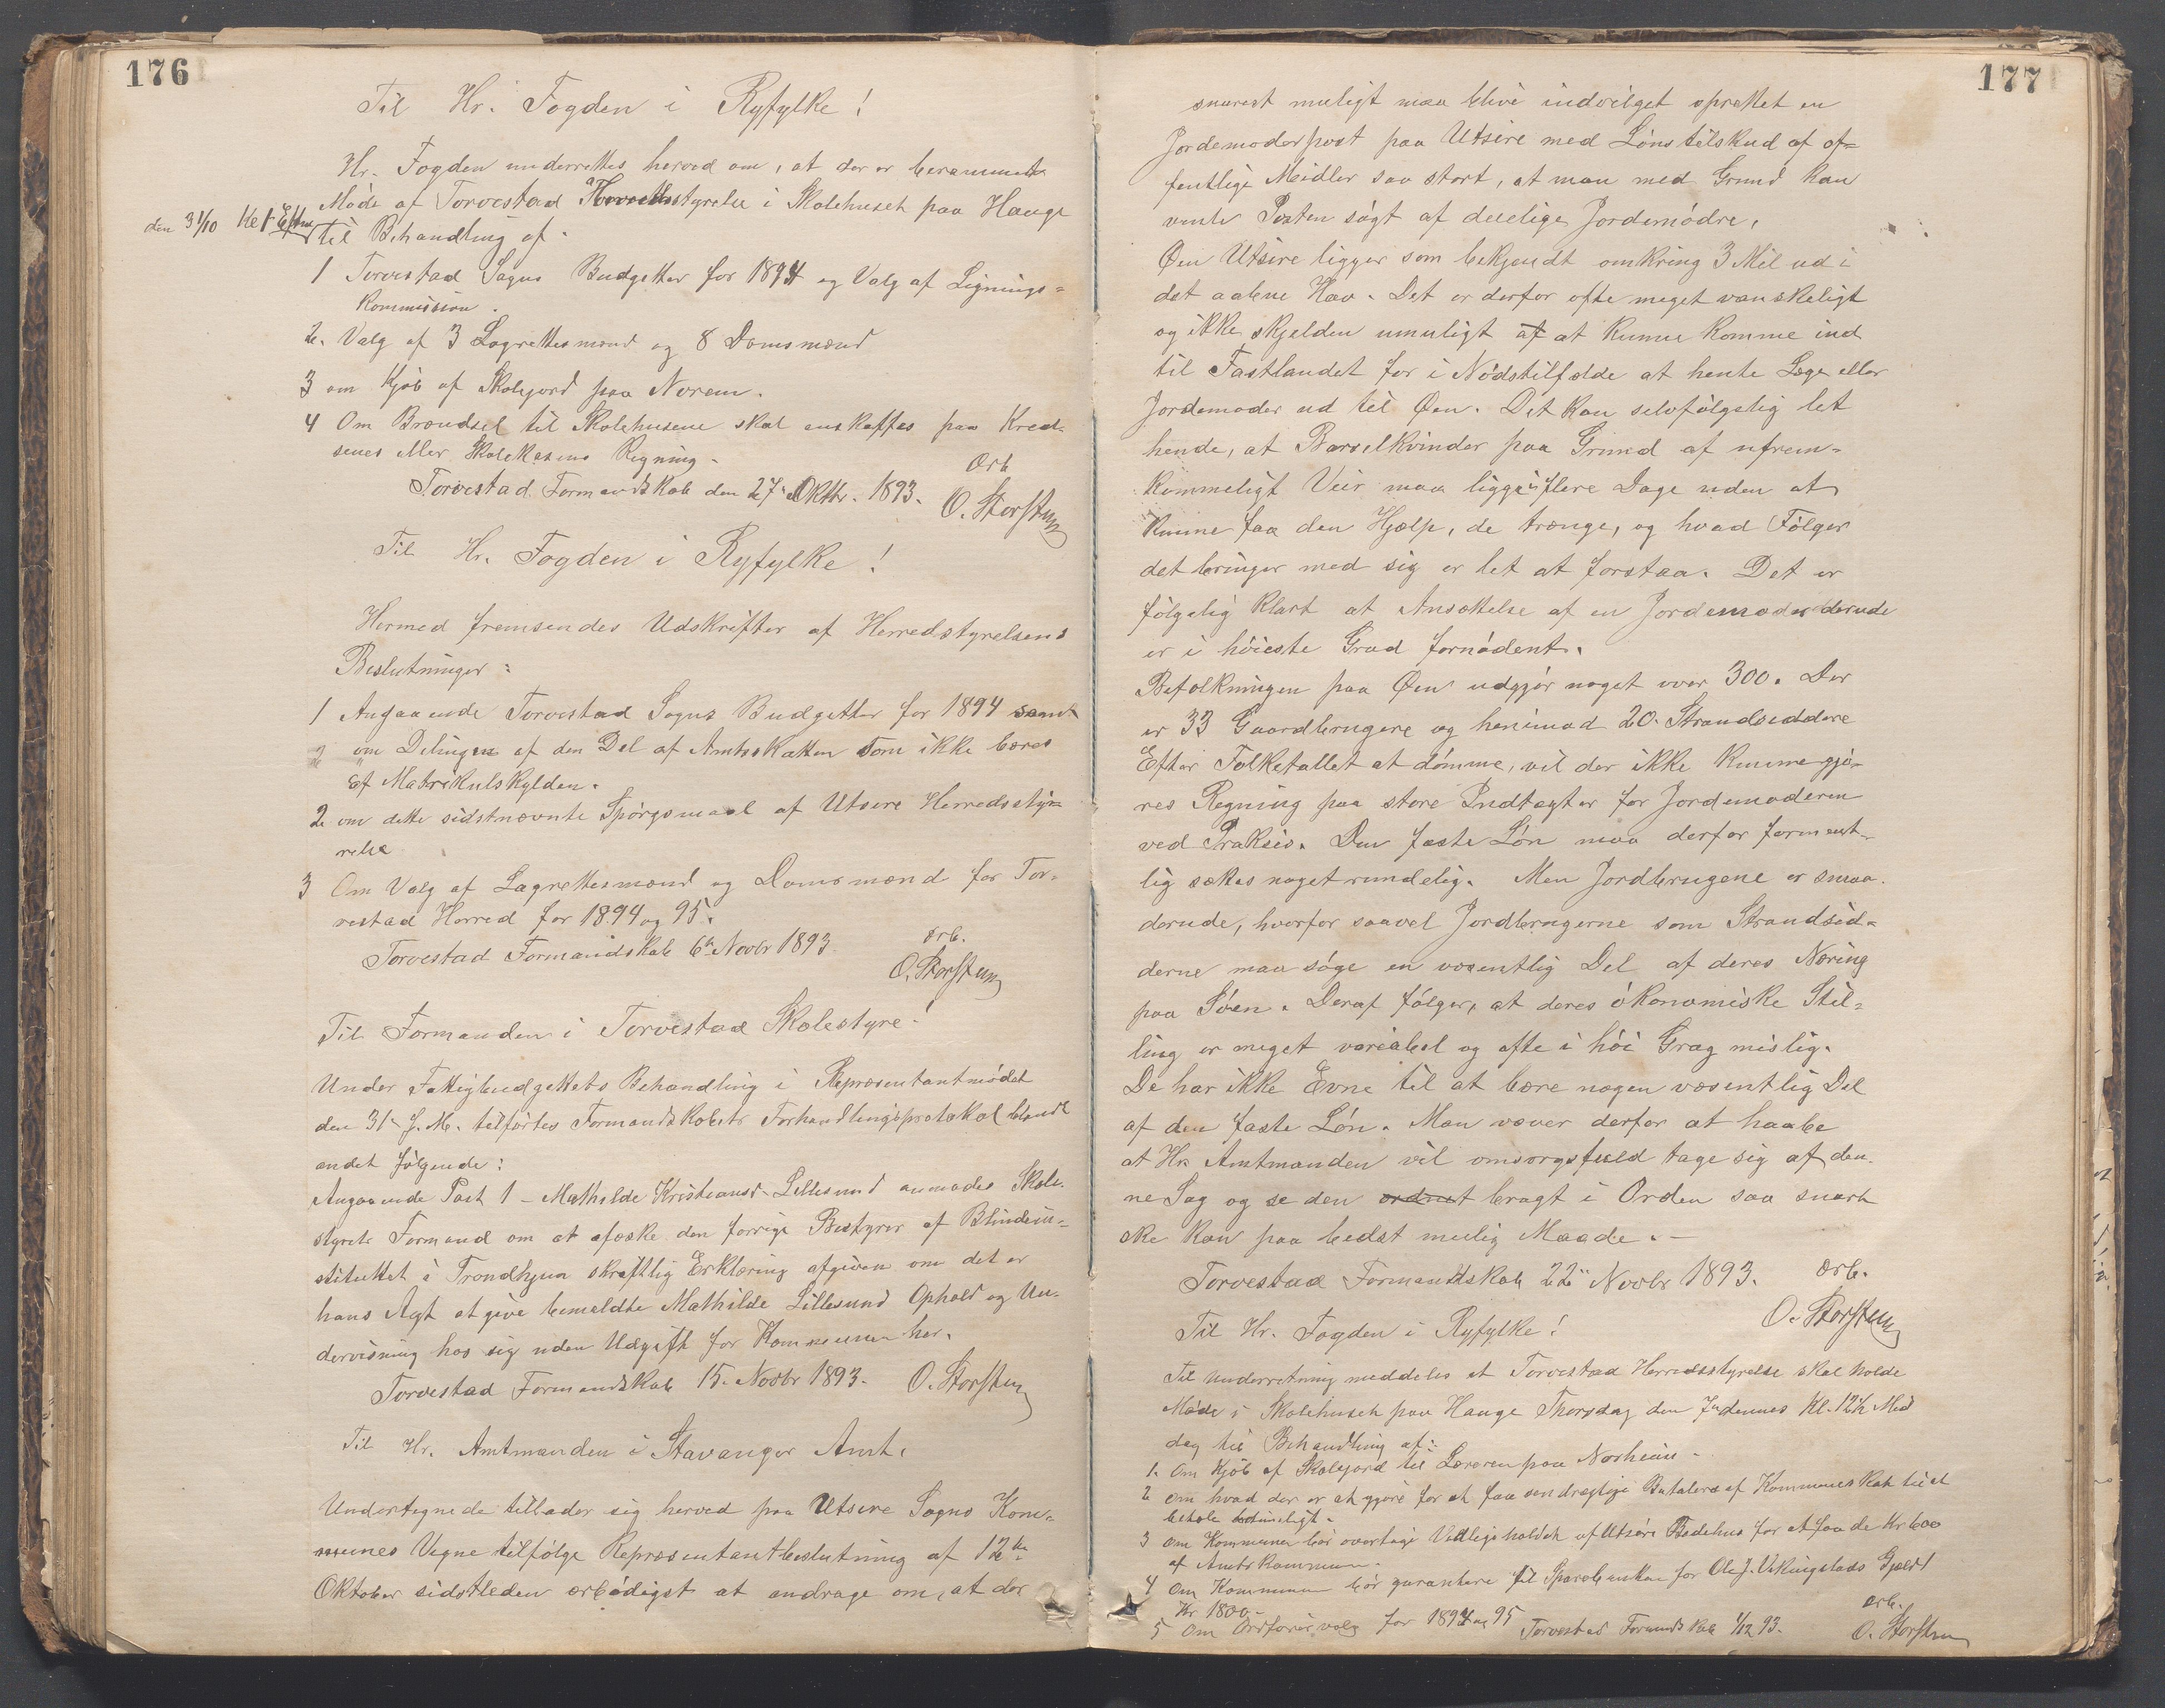 176
Til Hr. Fogden i Ryfylke!
Hr. Fogden underrettes herved om, at der er berammet
Møde af Torvestad Herredsstyrelse i Skolehuset paa Hauge
den 31/10 Kl 1 Efterm
til Behandling af:
1 Torvestad Sogns Budgetter for 1894 og Valg af Lignings-
kommission.
2. Valg af 3 Lagrettesmænd og 8 Domsmænd
3 om Kjøb af Skolejord paa Norem.
4 Om Brændsel til Skolehusene skal anskaffes paa Kred-
senes eller Skolekasens Regning.
Torvestad Formandskab den 27. Oktbr. 1893.
Ærb
O. Storsteen
Til Hr. Fogden i Ryfylke!
Hermed fremsendes Udskrifter af Herredstyrelsens
Beslutninger:
1 Angaaende Torvestad Sogns Budgetter for 1894 samt
2 om Delingen af den Del af Amtsskatten som ikke bæres
af Matrikulskylden.
2 om dette sidstnævnte Spørgsmaal af Utsire Herredssty-
relse
3 Om Valg af Lagrettesmænd og Domsmænd for Tor-
vestad Herred for 1894 og 95.
Torvestad Formandskab 6te Novbr 1893.
ærb.
O. Storsteen
Til Formanden i Torvestad Skolestyre!
Under Fattigbudgettets Behandling i Repræsentantmødet
den 31- f. M. tilførtes Formandskabets Forhandlingsprotokol blandt
andet følgende:
Angaaende Post 1 - Mathilde Kristiansd. Lillesund anmodes Skole-
styrets Formand om at afæske den forrige Bestyrer af Blindein-
stituttet i Trondhjem skriftlig Erklæring afgiven om det er
hans Agt at give bemeldte Mathilde Lillesund Ophold og Un-
dervisning hos sig uden Udgift for Kommunen her.
Torvestad Formandskab 15. Novbr 1893. O. Storsteen
Til Hr. Amtmanden i Stavanger Amt.
Undertegnede tillader sig herved paa Utsire Sogns Kom-
munes Vegne tilfølge Repræsentantbeslutning af 12te
Oktober sidstleden ærbødigst at andrage om, at der
177
snarest muligt maa blive indvilget oprettet en
Jordemoderpost paa Utsire med Lønstilskud af of-
fentlige Midler saa stort, at man med Grund kan
vente Posten søgt af duelige Jordemødre.
Øen Utsire ligger som bekjendt omkring 3 Mil ud i
det aabne Hav. Det er derfor ofte meget vanskeligt
og ikke skjelden umuligt af at kunne komme ind
til Fastlandet for i Nødstilfælde at hente Læge eller
Jordemoder ud til Øen. Det kan selvfølgelig let
hende, at Barselkvinder paa Grund af ufrem-
kommeligt Veir maa ligge i flere Dage uden at
kunne faa den Hjælp, de trænge, og hvad Følger
det bringer med sig er let at forstaa. Det er
følgelig klart at Ansættelse af en Jordemoder derude
er i høieste Grad fornødent.
Befolkningen paa Øen udgjør noget over 300. Der
er 33 Gaardbrugere og henimod 20 Strandsiddere
Efter Folketallet at dømme, vil der ikke kunne gjø-
res Regning paa store Indtægter for Jordemoderen
ved Praksis. Den faste Løn maa derfor forment-
lig sættes noget rundelig. Men Jordbrugene er smaa
derude, hvorfor saavel Jordbrugerne som Strandsid-
derne maa søge en væsentlig Del af deres Næring
paa Søen. Deraf følger, at deres økonomiske Stil-
ling er meget variabel og ofte i høi Grag mislig.
De har ikke Evne til at bære nogen væsentlig Del
af den faste Løn. Man vover derfor at haabe
at Hr Amtmanden vil omsorgsfuld tage sig af den-
ne Sag og se den ordnet bragt i Orden saa snart
ske kan paa bedst mulig Maade. -
Torvestad Formandskab 22de Novbr 1893.
ærb.
O. Storsteen
Til Hr. Fogden i Ryfylke!
Til Underretning meddeles at Torvestad Herredsstyrelse skal holde
Møde i Skolehuset paa Hauge Thorsdag den 7de dennes Kl. 12½ Mid
dag til Behandling af:
1. Om Kjøb af Skolejord til Læreren paa Norheim.
2 om hvad der er at gjøre for at faa Betalere af Kommuneskat til at
betale
3 om Kommunen bør overtage Vedligeholdet af Utsire Bedehus for at faa de Kr 600
af Amtskommunen.
4 Om Kommunen bør garantere til Sparebanken for Ole J. Vikingstads Gjæld
Kr 1800.
5 Om Ordførervalg for 1894 og 95
Torvestad Formandskab 1/12 93.
ærb.
O. Storsteen